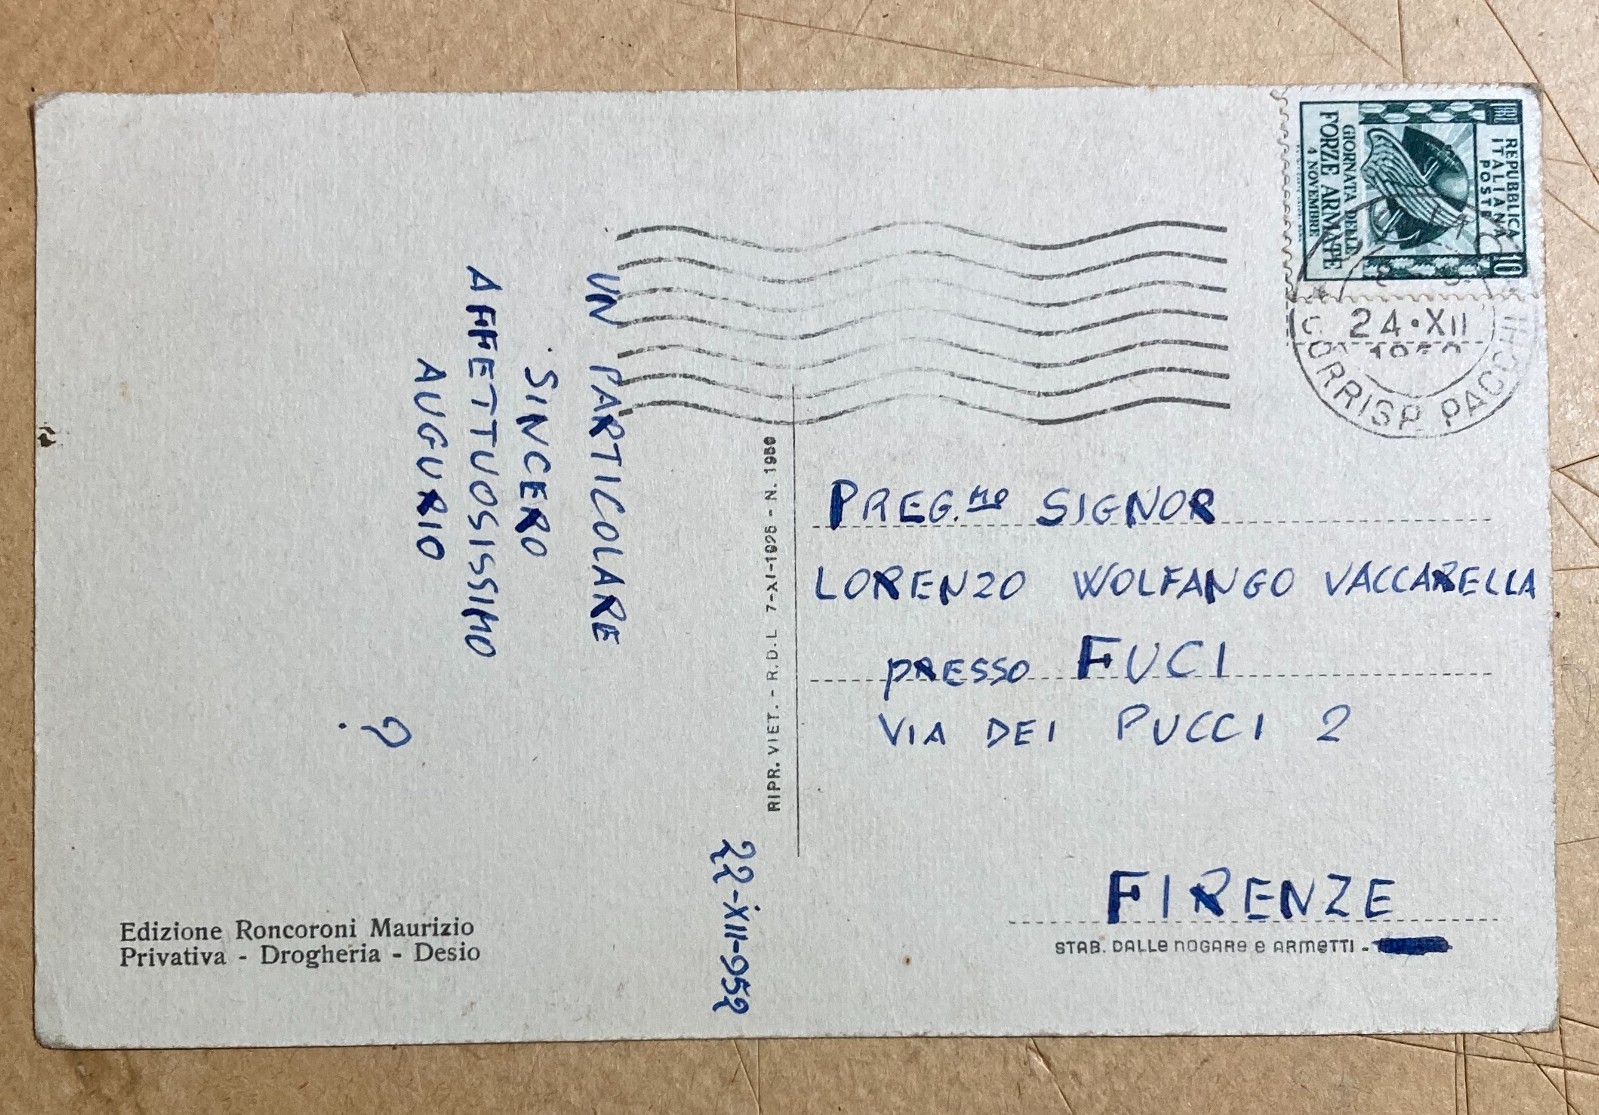 UN PARTICOLARE
SINCERO
AFFETTUOSISSIMO
AUGURIO
?
22-XII-952
Edizione Roncoroni Maurizio
Privativa - Drogheria - Desio
RIPR. VIET. - R.D.L. 7-XI-1925 - N. 1950
REPUBBLICA
ITALIANA
POSTE
LIRE 10
GIORNATA DELLE
FORZE ARMATE
4 NOVEMBRE
24•XII
CORRISP. PACCHI
PREG.MO SIGNOR
LORENZO WOLFANGO VACCARELLA
PRESSO FUCI
VIA DEI PUCCI 2
FIRENZE
STAB. DALLE NOGARE E ARMETTI -